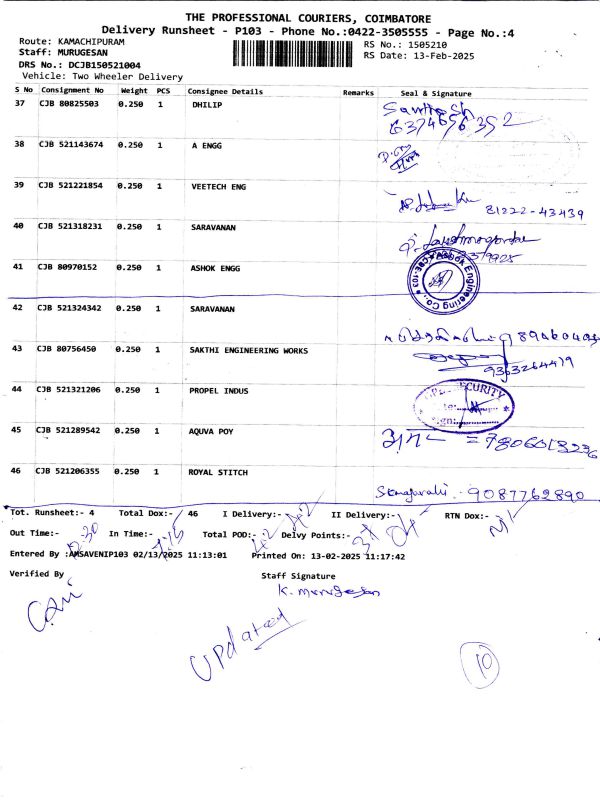 THE PROFESSIONAL COURIERS, COIMBATORE
Delivery Runsheet - P103 - Phone No.:0422-3505555 - Page No.:4
Route: KAMACHIPURAM
RS No.: 1505210
Staff: MURUGESAN
RS Date: 13-Feb-2025
DRS No.: DCJB150521004
Vehicle: Two Wheeler Delivery
S No Consignment No Weight PCS Consignee Details Remarks Seal & Signature
37 CJB 80825503 0.250 1 DHILIP Santhosh
6374656352
38 CJB 521143674 0.250 1 A ENGG
39 CJB 521221854 0.250 1 VEETECH ENG
81222-43439
40 CJB 521318231 0.250 1 SARAVANAN
41 CJB 80970152 0.250 1 ASHOK ENGG
Ashok Engineering Co., CBE-103
42 CJB 521324342 0.250 1 SARAVANAN
43 CJB 80756450 0.250 1 SAKTHI ENGINEERING WORKS
9363264419
44 CJB 521321206 0.250 1 PROPEL INDUS
SECURITY
45 CJB 521289542 0.250 1 AQUVA POY
= 7806013236
46 CJB 521206355 0.250 1 ROYAL STITCH
9087762890
Tot. Runsheet:- 4 Total Dox:- 46 I Delivery:- 42 II Delivery:- RTN Dox:-
Out Time:- In Time:- Total POD:- 42 Delvy Points:-
Entered By :AMSAVENIP103 02/13/2025 11:13:01 Printed On: 13-02-2025 11:17:42
Verified By Staff Signature
K. Murugesan
updated
10